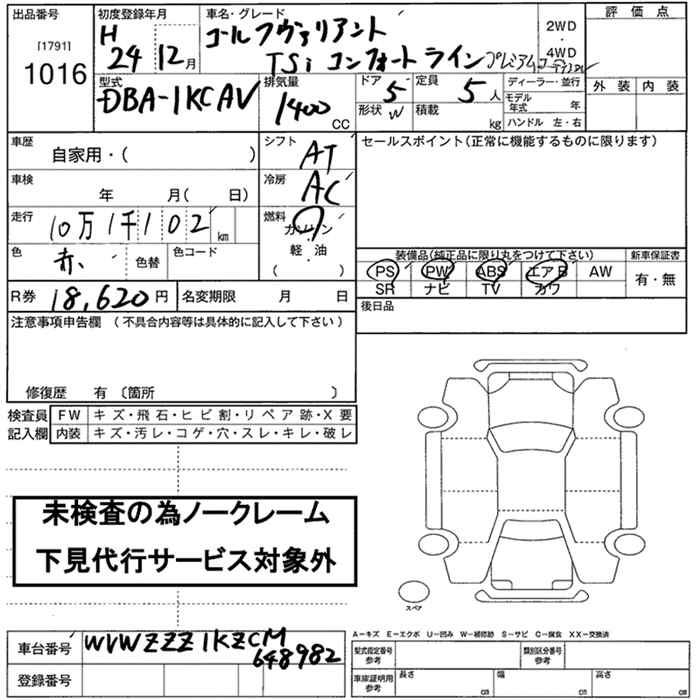 出品番号
[1791]
1016
初度登録年月
H
24 12月
車名・グレード
ゴルフヴァリアント
TSi コンフォートライン プレミアムエディション
2WD
・
4WD
評価点
外装 内装
型式
DBA-1KCAV
排気量
1400
CC
ドア 5
形状 W
定員 5人
積載 kg
ディーラー・並行
モデル年式 年
ハンドル 左・右
車歴
自家用・( )
シフト
AT
車検
年 月( 日)
冷房
AC
走行
10万1千102 km
燃料
ガソリン
・
軽・油
( )
色
赤
色替
色コード
R券 18,620円
名変期限 月 日
セールスポイント(正常に機能するものに限ります)
装備品(純正品に限り丸をつけて下さい)
PS PW ABS エアB AW
SR ナビ TV カワ
新車保証書
有・無
後日品
注意事項申告欄 (不具合内容等は具体的に記入して下さい)
修復歴 有 〔箇所 〕
検査員記入欄
FW キズ・飛石・ヒビ割・リペア跡・X要
内装 キズ・汚レ・コゲ・穴・スレ・キレ・破レ
未検査の為ノークレーム
下見代行サービス対象外
スペア
A-キズ E-エクボ U-凹み W-補修跡 S-サビ C-腐食 XX-交換済
車台番号 WVWZZZ1KZCM
648982
登録番号
型式指定番号
参考
類別区分番号
参考
車庫証明用
参考
長さ cm
幅 cm
高さ cm